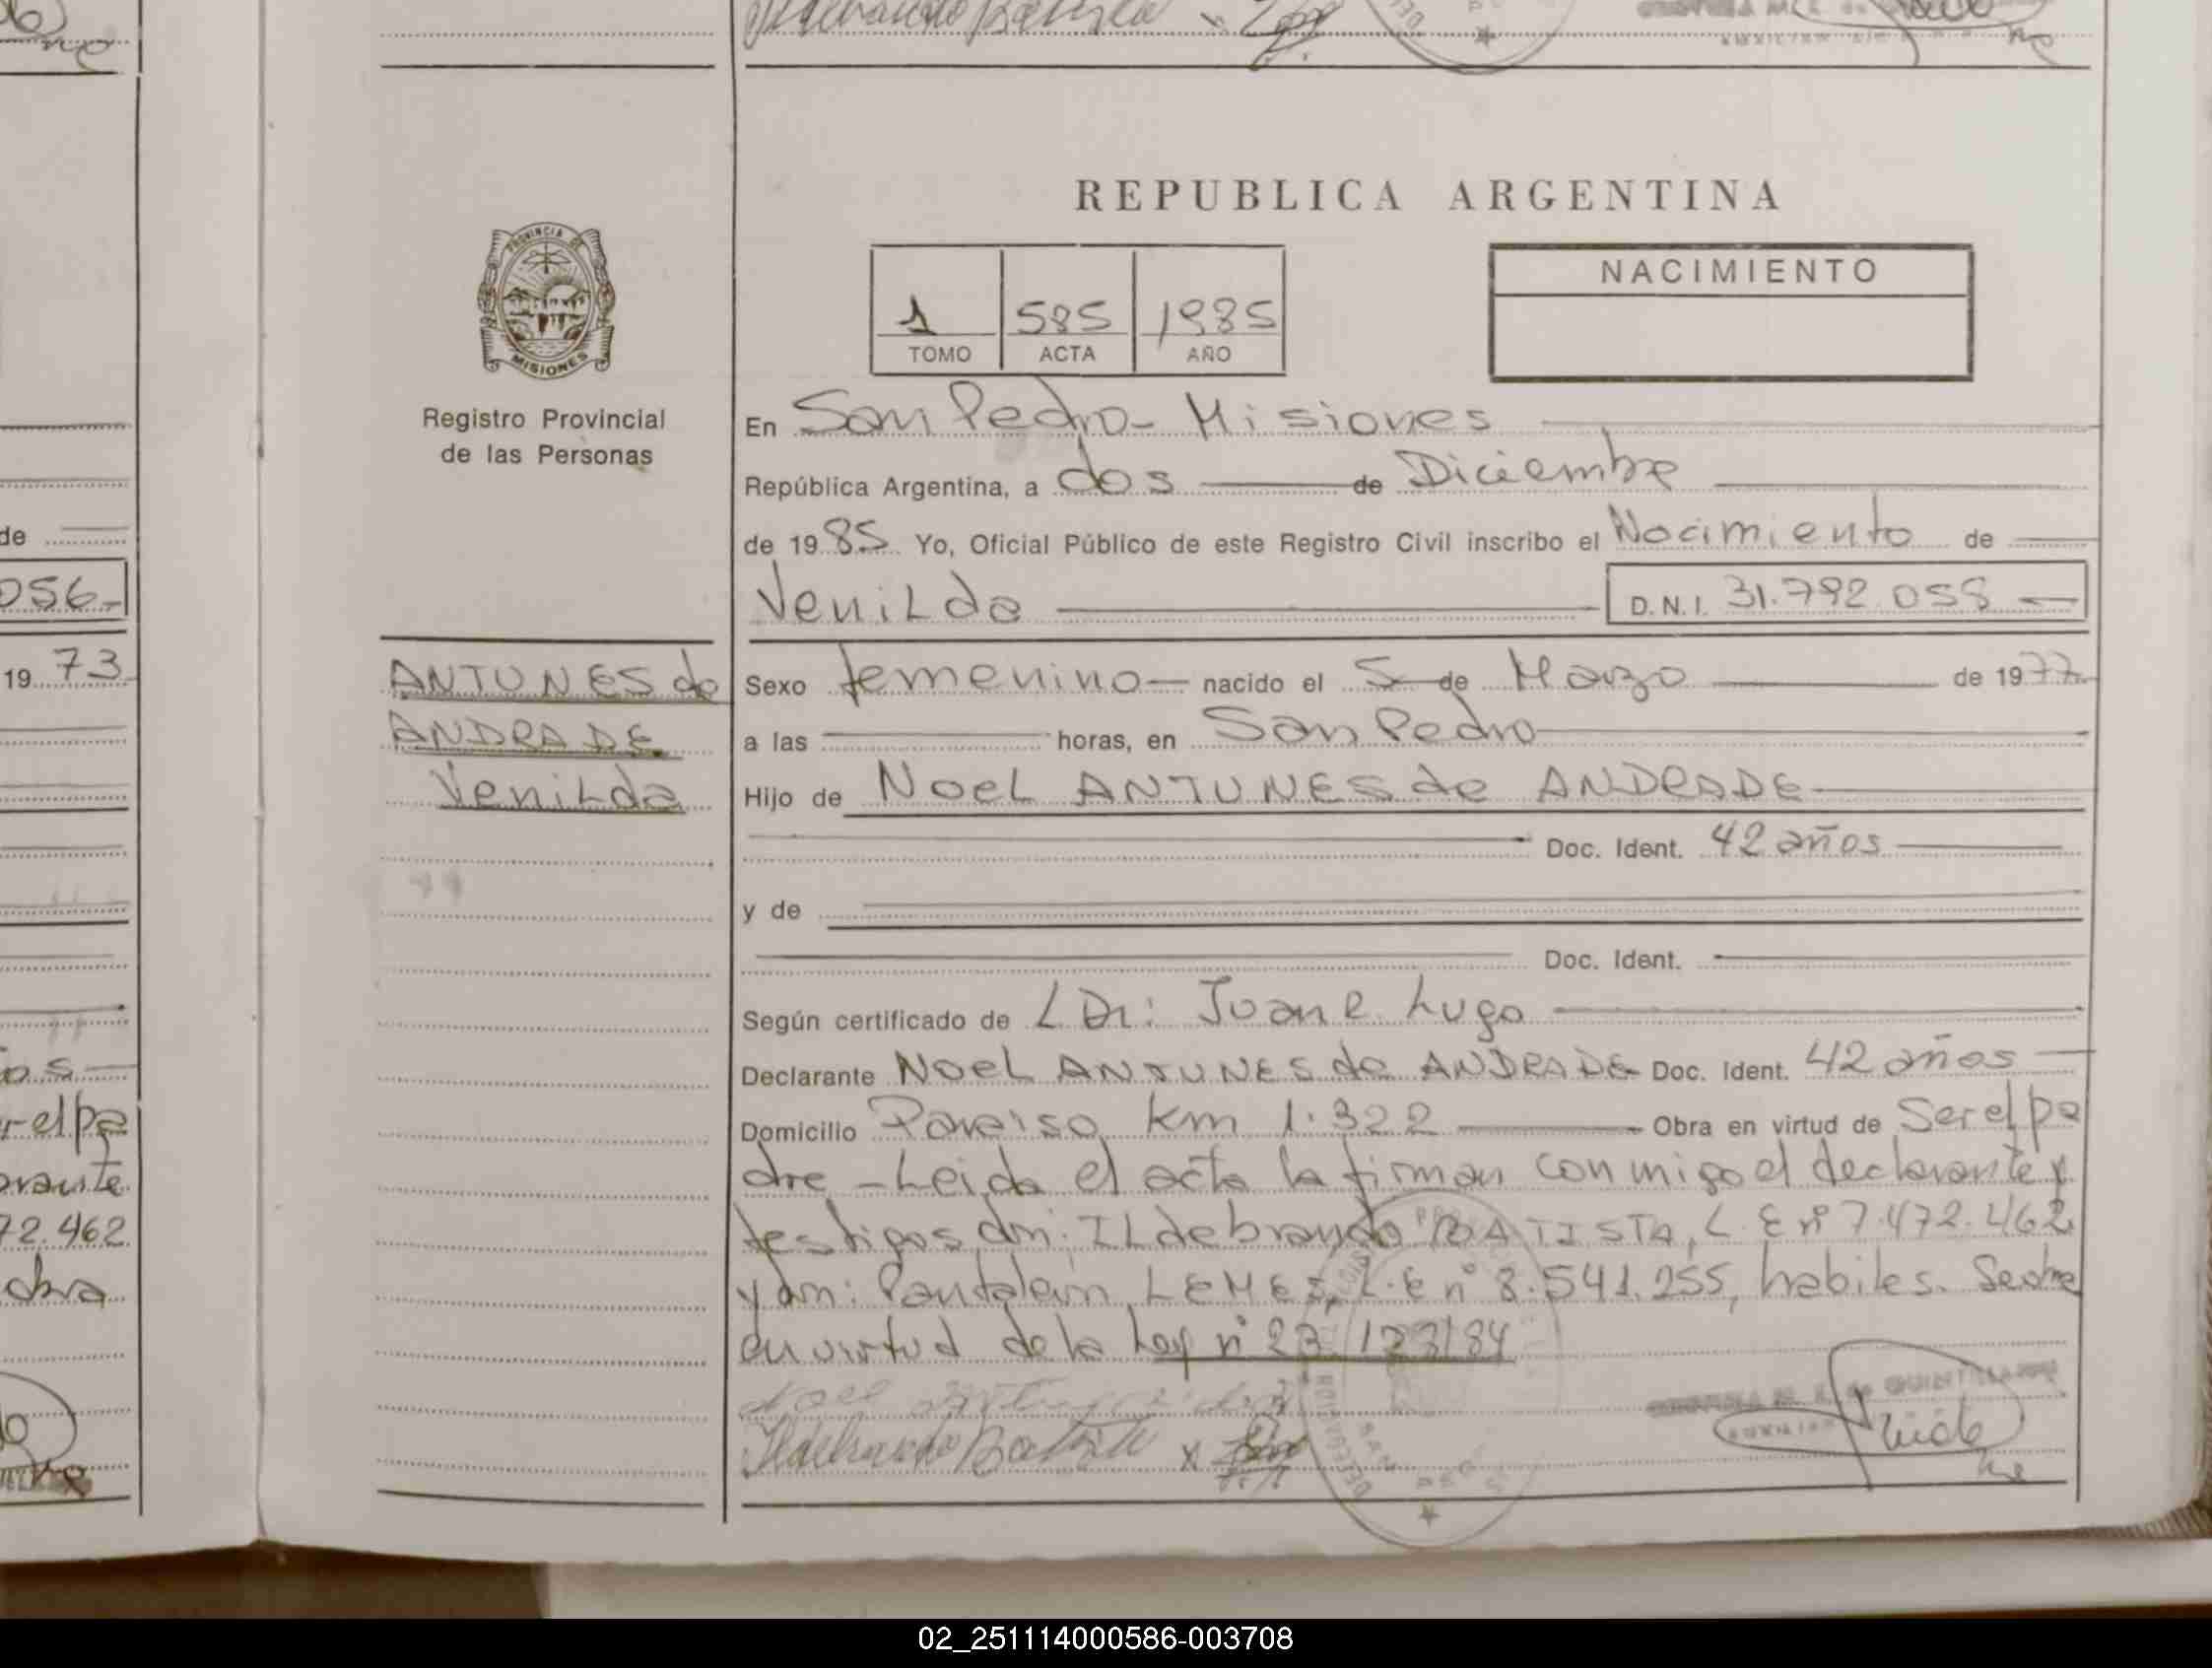 REPUBLICA ARGENTINA
PROVINCIA DE
MISIONES
Registro Provincial
de las Personas
1 585 1985
TOMO ACTA AÑO
NACIMIENTO
En San Pedro - Misiones
República Argentina, a dos de Diciembre
de 1985 Yo, Oficial Público de este Registro Civil inscribo el Nacimiento de
Venilda D.N.I. 31.792.058
ANTUNES de
ANDRADE
Venilda
Sexo femenino nacido el 5 de Marzo de 1977
a las horas, en San Pedro
Hijo de Noel ANTUNES de ANDRADE
Doc. Ident. 42 años
y de
Doc. Ident.
Según certificado de LDn: Juan R. Lugo
Declarante Noel ANTUNES de ANDRADE Doc. Ident. 42 años
Domicilio Paraiso km 1.322 Obra en virtud de Ser el pa
dre - Leida el acta la firman conmigo el declarante y
testigos dn: ILdebrando BATISTA, L. E nº 7.472.462
y dn: Pantaleón LEMES, L.E nº 8.541.255, habiles. Se
en virtud de la Ley nº 23.123/84
Ildebrando Batista x
QUINTILLAN
SAN PEDRO
de
056-
19 73
os
r el pa
arante
72.462
02_251114000586-003708